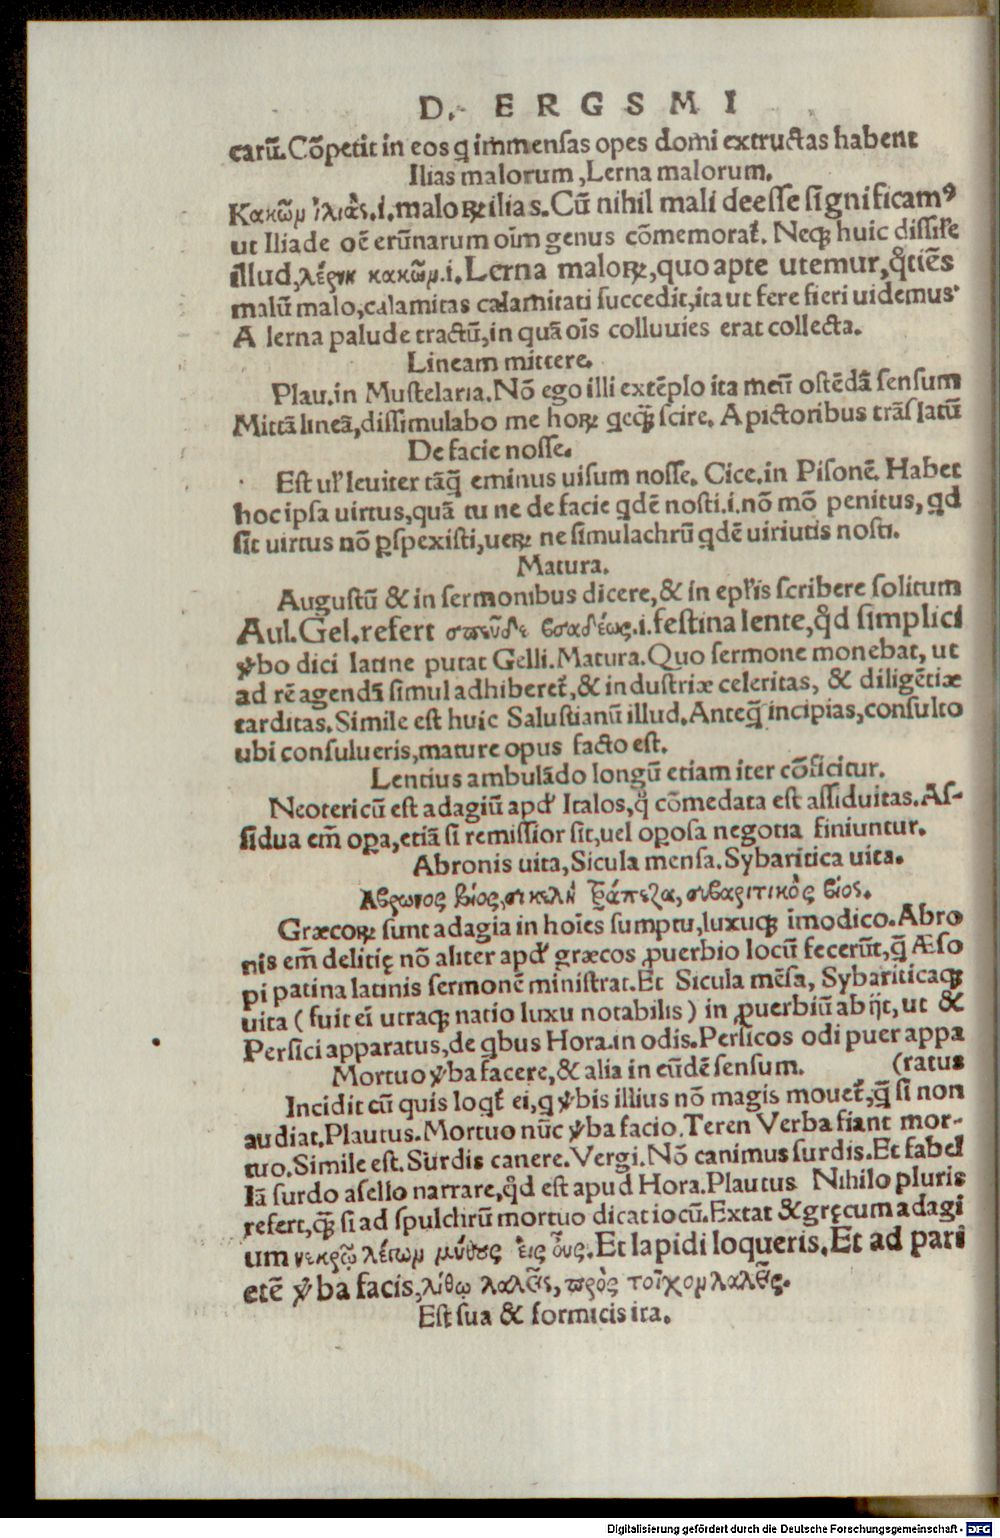 D. ERGSMI
carũ. Cõpetit in eos q immensas opes domi extructas habent
Ilias malorum, Lerna malorum.
Κακῶμ ἰλιὰς.i.maloꝝ ilias. Cũ nihil mali deesse significamꝰ
ut Iliade oẽ erũnarum oĩm genus cõmemorat̃. Neqꝫ huic dissiłe
illud, λέρνη κακῶμ.i. Lerna maloꝝ, quo apte utemur, q̊tiẽs
malũ malo, calamitas calamitati succedit, ita ut fere fieri uidemus.
A lerna palude tractũ, in quã oĩs colluuies erat collecta.
Lineam mittere.
Plau. in Mustelaria. Nõ ego illi extẽplo ita meũ ostẽdã sensum
Mittã lineã, dissimulabo me hoꝝ qcqꝫ̃ scire. A pictoribus trãslatũ
De facie nosse.
Est uł leuiter tãq̃ eminus uisum nosse. Cice. in Pisonẽ. Habet
hoc ipsa uirtus, quã tu ne de facie qdẽ nosti.i. nõ mõ penitus, qd
sit uirtus nõ ꝑspexisti, ueꝝ ne simulachrũ qdẽ uiriutis nosti.
Matura.
Augustũ & in sermonibus dicere, & in epłis scribere solitum
Aul. Gel. refert σπεῦδε βραδέως.i. festina lente, q̊d simplici
ỽbo dici latine putat Gelli. Matura. Quo sermone monebat, ut
ad rẽ agendã simul adhiberet̃, & industriæ celeritas, & diligẽtiæ
tarditas. Simile est huic Salustianũ illud. Anteq̃ incipias, consulto
ubi consulueris, mature opus facto est.
Lentius ambulãdo longũ etiam iter cõficitur.
Neotericũ est adagiũ apd' Italos, q̊ cõmedata est assiduitas. As-
sidua em̃ oꝑa, etiã si remissior sit, uel oꝑosa negotia finiuntur.
Abronis uita, Sicula mensa. Sybaritica uita.
Αβρωνος βίος, σικελὴ τράπεζα, συβαριτικὸς βίος.
Græcoꝝ sunt adagia in hoĩes sumptu, luxuqꝫ ĩmodico. Abro
nis em̃ delitię nõ aliter apd' græcos ꝓuerbio locũ fecerũt, q̃ Æso
pi patina latinis sermonẽ ministrat. Et Sicula mẽsa, Sybariticaqꝫ
uita (fuit eĩ utraqꝫ natio luxu notabilis) in ꝓuerbiũ abijt, ut &
Persici apparatus, de qbus Hora. in odis. Persicos odi puer appa
Mortuo ỽba facere, & alia in eũdẽ sensum. (ratus
Incidit cũ quis loqt̃ ei, q ỽbis illius nõ magis mouet̃, q̃ si non
audiat. Plautus. Mortuo nũc ỽba facio. Teren Verba fiant mor-
tuo. Simile est. Surdis canere. Vergi. Nõ canimus surdis. Et fabel
lã surdo asello narrare, q̊d est apud Hora. Plautus Nihilo pluris
refert, qꝫ̃ si ad spulchrũ mortuo dicat iocũ. Extat & gręcum adagi
um νεκρῷ λέγωμ μύθους εἰς οὖς. Et lapidi loqueris. Et ad pari
etẽ ỽba facis, λίθῳ λαλεῖς, πρὸς τοῖχομ λαλεῖς.
Est sua & formicis ira.
Digitalisierung gefördert durch die Deutsche Forschungsgemeinschaft - DFG